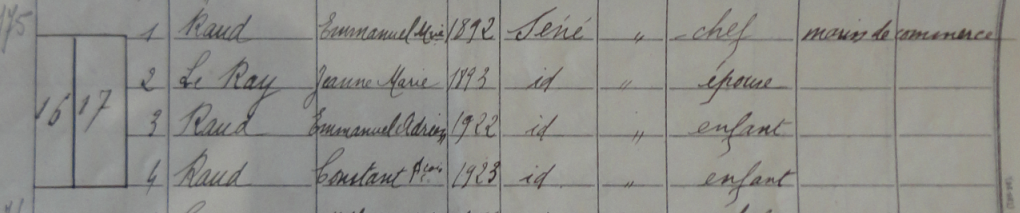 175
1 Raud Emmanuel Mrie 1892 Séné " chef marin de commerce
16 17
2 Le Ray Jeanne Marie 1893 id " épouse
3 Raud Emmanuel Adrien 1922 id " enfant
4 Raud Constant 1923 id " enfant